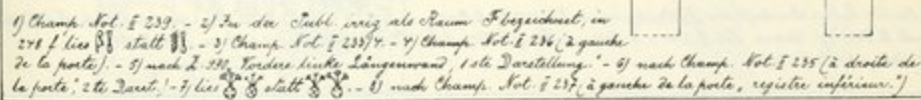 1) Champ. Not. I 239. - 2) In der Publ. irrig als Raum F bezeichnet, in
248 f lies statt . - 3) Champ. Not. I 233/4. - 4) Champ. Not. I 236 (à gauche
de la porte). - 5) nach Z. 990, Vordere linke Längenwand, 1ste Darstellung." - 6) nach Champ. Not. I 235 (à droite de
la porte", 2te Darst.! - 7) lies statt . - 8) nach Champ. Not. I 237 (à gauche de la porte, registre inférieur.")